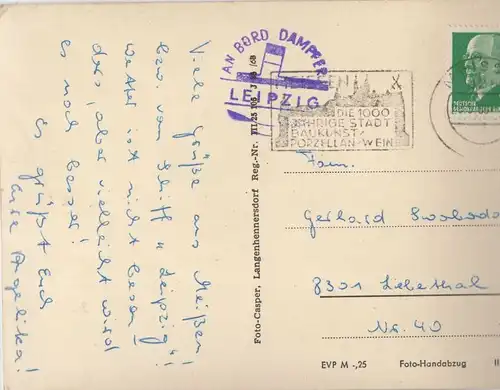 Viele Grüße aus Meißen!
bzw. vom Schiff „Leipzig“!
Wetter ist nicht beson-
ders, aber vielleicht wird
es noch besser!
Es grüßt Euch
Eure Angelika!
AN BORD DAMPFER
LEIPZIG
MEISSEN
DIE 1000
JÄHRIGE STADT
BAUKUNST/
PORZELLAN-WEIN
DEUTSCHE
Foto-Casper, Langenhennersdorf Reg.-Nr. III/25/105
Fam.
Gerhard Swoboda
8301 Liebethal
Nr. 40
EVP M -,25 Foto-Handabzug II